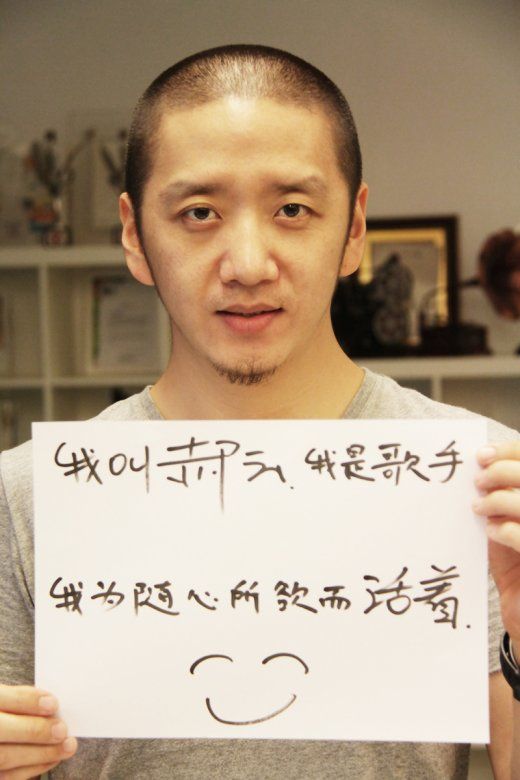 我叫郝云、我是歌手
我为随心所欲而活着.